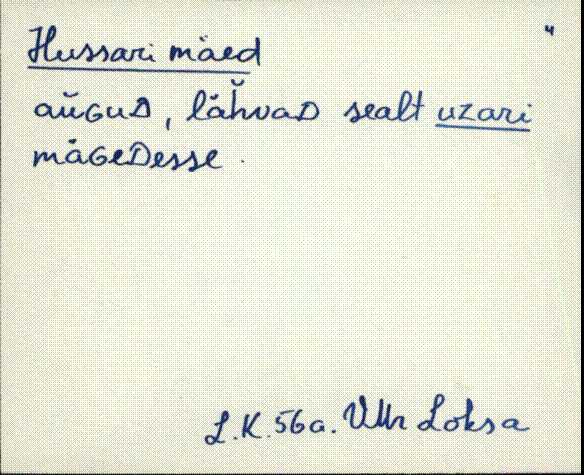 "
Hussari mäed
aŭGuD, läh̆vaD sealt uzari
mäGeDesse.
L.K. 56 a. VMr Loksa